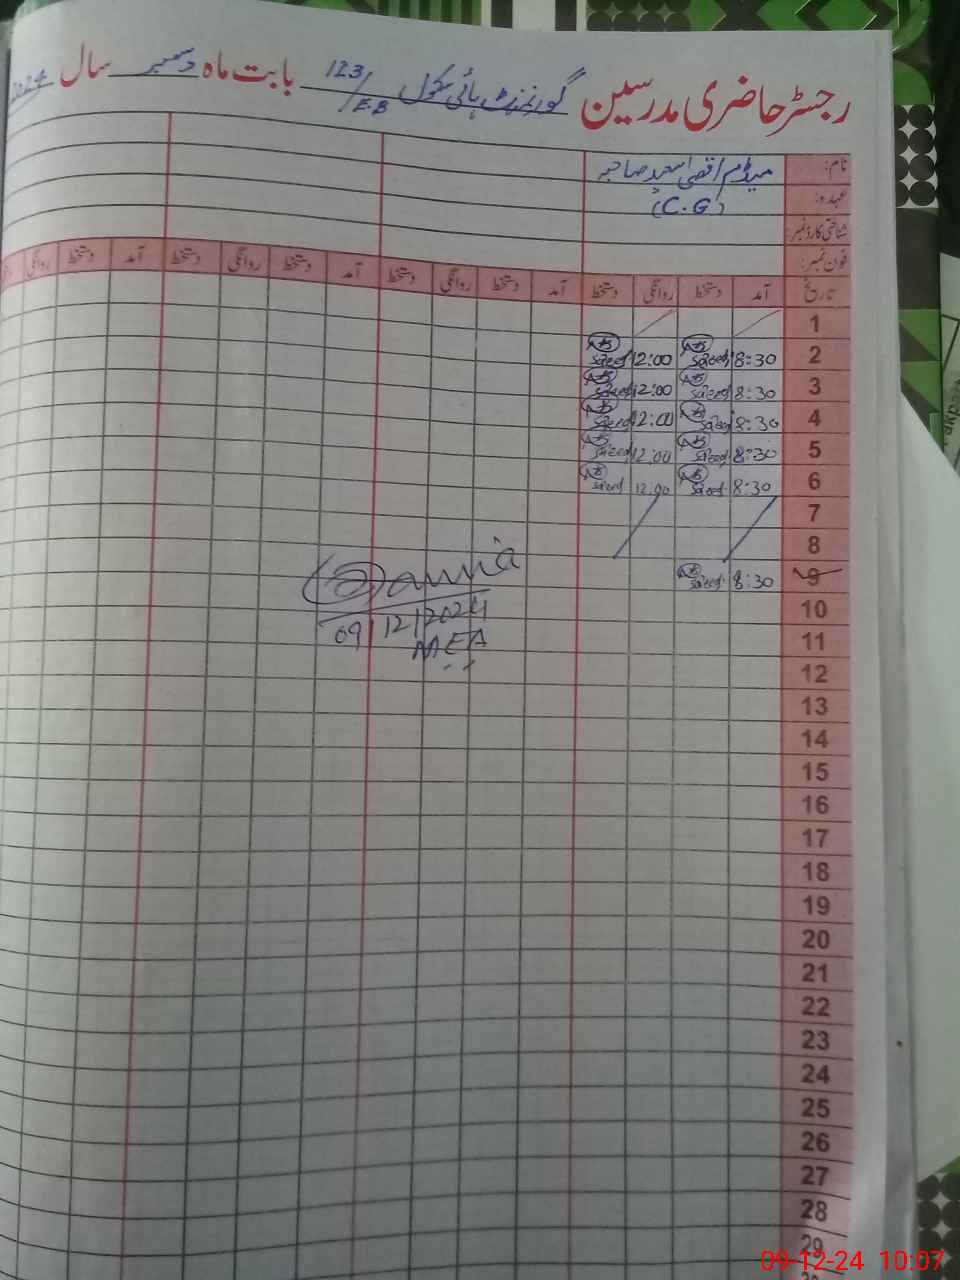 رجسٹر حاضری مدرسین گورنمنٹ ہائی سکول 123/E.B بابت ماہ دسمبر سال 2024
نام: میڈم اقصیٰ سعید صاحبہ
عہدہ: (C.G)
شناختی کارڈ نمبر:
فون نمبر:
تاریخ آمد دستخط روانگی دستخط آمد دستخط روانگی دستخط آمد دستخط روانگی دستخط آمد دستخط روانگی
1
2 8:30 Saeed 12:00 Saeed
3 8:30 Saeed 12:00 Saeed
4 8:30 Saeed 12:00 Saeed
5 8:30 Saeed 12:00 Saeed
6 8:30 Saeed 12:00 Saeed
7
8
9 8:30 Saeed
10
09/12/2024
11
MEA
12
13
14
15
16
17
18
19
20
21
22
23
24
25
26
27
28
29
09-12-24 10:07